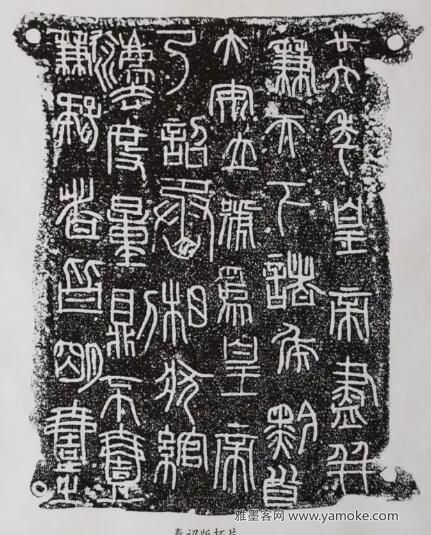 廿六年皇帝盡并
兼天下諸侯黔首
大安立號爲皇帝
乃詔丞相狀綰
灋度量則不壹
歉疑者皆明壹之
雅墨客网 www.yamoke.com